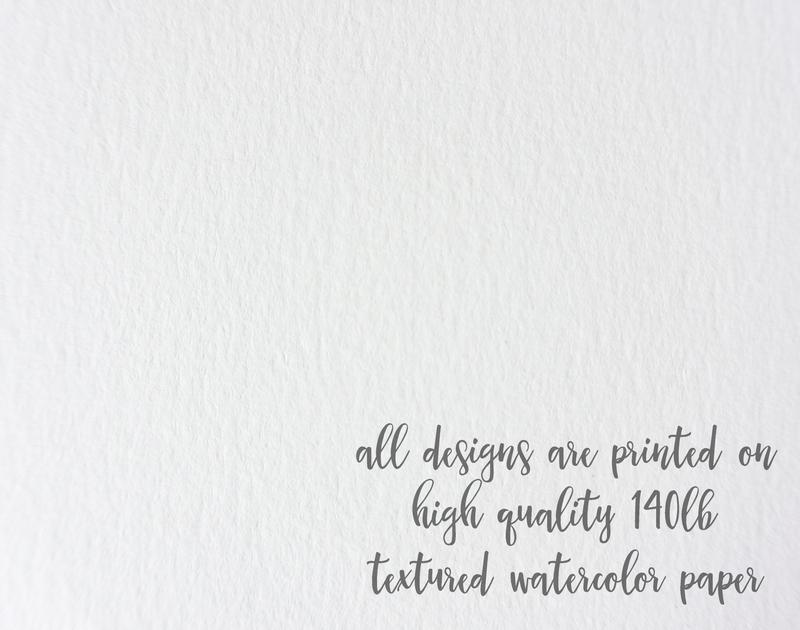 all designs are printed on
high quality 140lb
textured watercolor paper